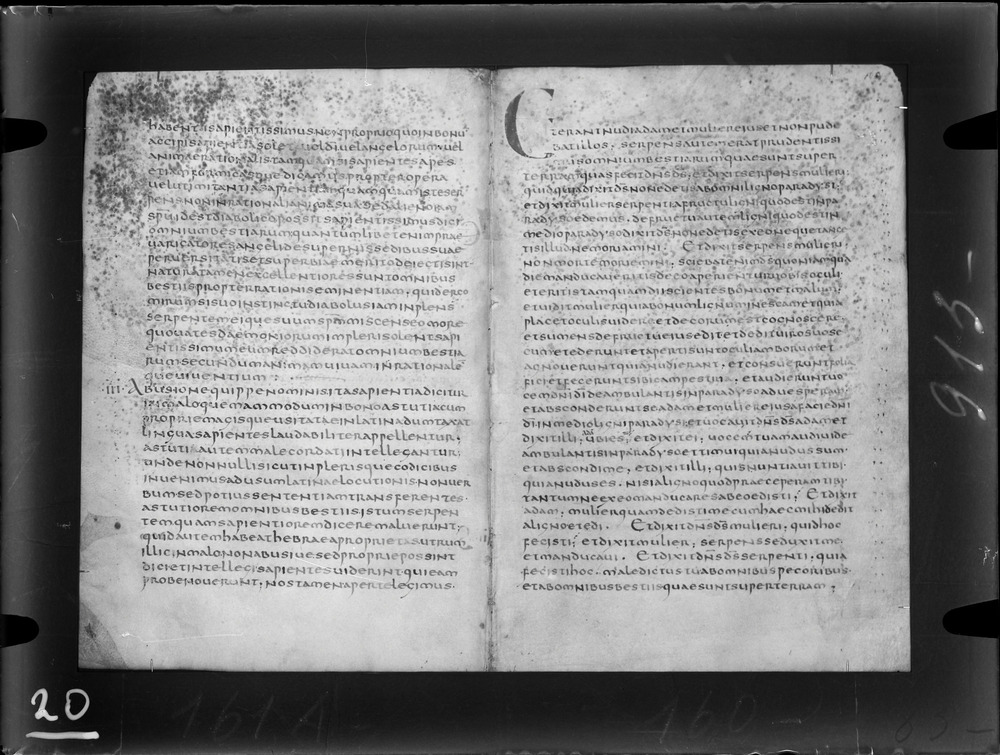 HABENTISAPIENTISSIMUSNEXPROPRIOQUOINBONU
ACCIPISAPIENTIASOLET VELDIVELANGELORUMVEL
ANIMAERATIONALISTAMQUAMSISAPIENTESAPES
ETIAMFORMICASQUEDICAMUSPROPTEROPERA
VELUTIMITANTIASAPIENTIAMQUAMQUAMISTESER
PENSNONINRATIONALIANIMASUASEDALIENOIAM
SPUIDESTDIABOLICOPOSSETSAPIENTISSIMUSDICI
OMNIUMBESTIARUMQUANTUMLIBETENIMPRAE
VARICATORESANGELIDESUPERNISSEDIBUSSUAE
PERUERSITATISETSUPERBIAEMERITODEIECTISINT
NATURATAMENEXCELLENTIORESSUNTOMNIBUS
BESTIISPROPTERRATIONISEMINENTIAM; QUIDERGO
MIRUMSISUOINSTINCTUDIABOLUSIAMINPLENS
SERPENTEMEIQUESUUMSPMMISCENSEOMORE
QUOVATESDAEMONIORUMIMPLERISOLENTSAPI
ENTISSIMUMEUMREDDIDERATOMNIUMBESTIA
RUMSECUNDUMANIMAMVIVAMINRATIONALE
QUEVIVENTIUM;
III· ABUSIONEQUIPPENOMINISITASAPIENTIADICITUR
INMALOQUEMAMMODUMINBONOASTUTIACUM
PROPRIEMAGISQUEUSITATAEINLATINADUMTAXAT
LINGUASAPIENTESLAUDABILITERAPPELLENTUR;
ASTUTIAUTEMMALECORDATIINTELLEGANTUR;
UNDENONNULLISICUTINPLERISQUECODICIBUS
INVENIMUSADUSUMLATINAELOCUTIONISNONUER
BUMSEDPOTIUSSENTENTIAMTRANSFERENTES·
ASTUTIOREMOMNIBUSBESTIISISTUMSERPEN
TEMQUAMSAPIENTIOREMDICEREMALUERUNT;
QUIDAUTEMHABEATHEBRAEAPROPRIETASUTRUM
ILLICINMALONONABUSIUESEDPROPRIEPOSSINT
DICIETINTELLEGISAPIENTESVIDERINTQUIEAM
PROBENOVERUNT; NOSTAMENAPERTELEGIMUS·
ETERANTNUDIADAMETMULIEREIUSETNONPUDE
BATILLOS; SERPENSAUTEMERATPRUDENTISSI
MUSOMNIUMBESTIARUMQUAESUNTSUPER
TERRAMQUASFECITDNSDS; ETDIXITSERPENSMULIERI;
QUIDQUIADIXITDSNONEDETISABOMNILIGNOPARADYSI;
ETDIXITMULIERSERPENTIAFRUCTULIGNIQUODESTINPA
RADYSOEDEMUS· DEFRUCTUAUTEMLIGNIQUODESTIN
MEDIOPARADYSODIXITDSNONEDETISEXEONEQUETANGE
TISILLUDNEMORIAMINI; ETDIXITSERPENSMULIERI;
NONMORTEMORIEMINI; SCIEBATENIMDSQUONIAMQUA
DIEMANDUCAUERITISDEEOAPERIENTURUOBISOCULI·
ETERITISTAMQUAMDIISCIENTESBONUMETMALUM;
ETUIDITMULIERQUIABONUMLIGNUMINESCAMETQUIA
PLACETOCULISUIDEREETDECORUMESTCOGNOSCERE;
ETSUMENSDEFRUCTUEIUSEDITETDEDITUIROSUOSE
CUMETEDERUNTETAPERTISUNTOCULIAMBORUMET
AGNOVERUNTQUIANUDIERANT; ETCONSUERUNTFOLIA
FICIETFECERUNTSIBICAMPESTRIA; ETAUDIERUNTUO
CEMDNIDIDEAMBULANTISINPARADYSOADUESPERAM;
ETABSCONDERUNTSEADAMETMULIEREIUSAFACIEDNI
DIINMEDIOLIGNIPARADYSI; ETUOCAUITDNSDSADAMET
DIXITILLI; ADAM UBIES; ETDIXITEI; UOCEMTUAMAUDIUIDE
AMBULANTISINPARADYSOETTIMUIQUIANUDUSSUM·
ETABSCONDIME; ETDIXITILLI; QUISNUNTIAUITTIBI
QUIANUDUSES· NISIALIGNOQUODPRAECEPERAMTIBI
TANTUMNEEXEOMANDUCARESABEOEDISTI; ETDIXIT
ADAM; MULIERQUAMDEDISTIMECUMHAECMIHIDEDIT
ALIGNOETEDI· ETDIXITDNSDSMULIERI; QUIDHOC
FECISTI; ETDIXITMULIER; SERPENSSEDUXITME·
ETMANDUCAUI· ETDIXITDNSDSSERPENTI; QUIA
FECISTIHOC· MALEDICTUSTUABOMNIBUSPECORIBUS·
ETABOMNIBUSBESTIISQUAESUNTSUPERTERRAM;
913-
20
161A
160-